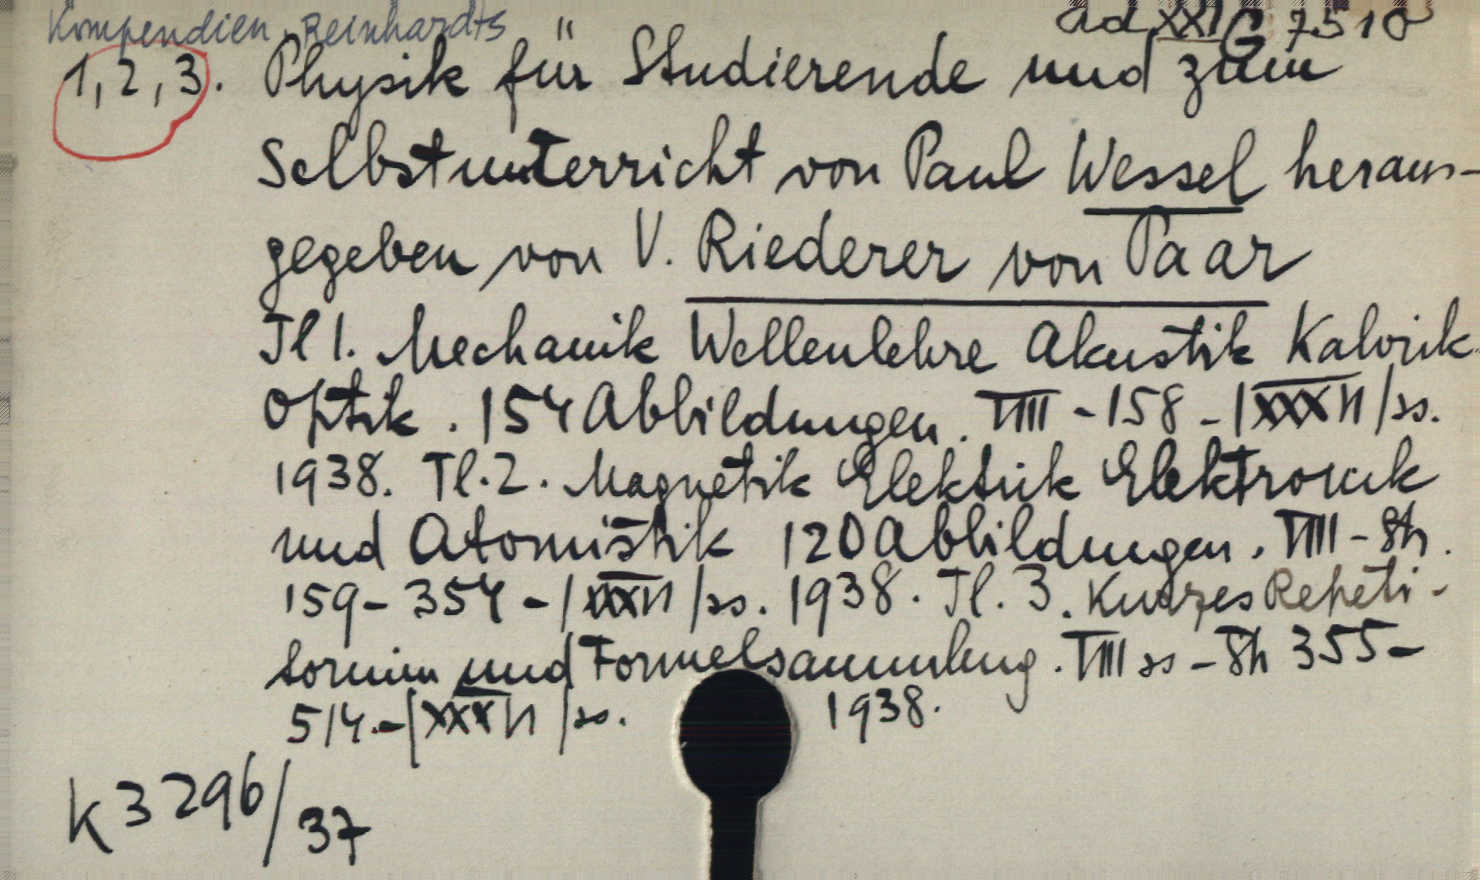 Kompendien, Reinhardts
ad XXI G 7510
1, 2, 3. Physik für Studierende und zum
Selbstunterricht von Paul Wessel heraus-
gegeben von V. Riederer von Paar
Tl 1. Mechanik Wellenlehre Akustik Kalorik
Optik. 154 Abbildungen. VIII - 158 - |XXXII| ss.
1938. Tl. 2. Magnetik Elektrik Elektronik
und Atomistik 120 Abbildungen. VIII - Sh.
159 - 354 - |XXXII| ss. 1938. Tl. 3. Kurzes Repeti-
torium und Formelsammlung. VIII ss - Sh 355 -
514. - |XXXII| ss. 1938.
K 3296/37